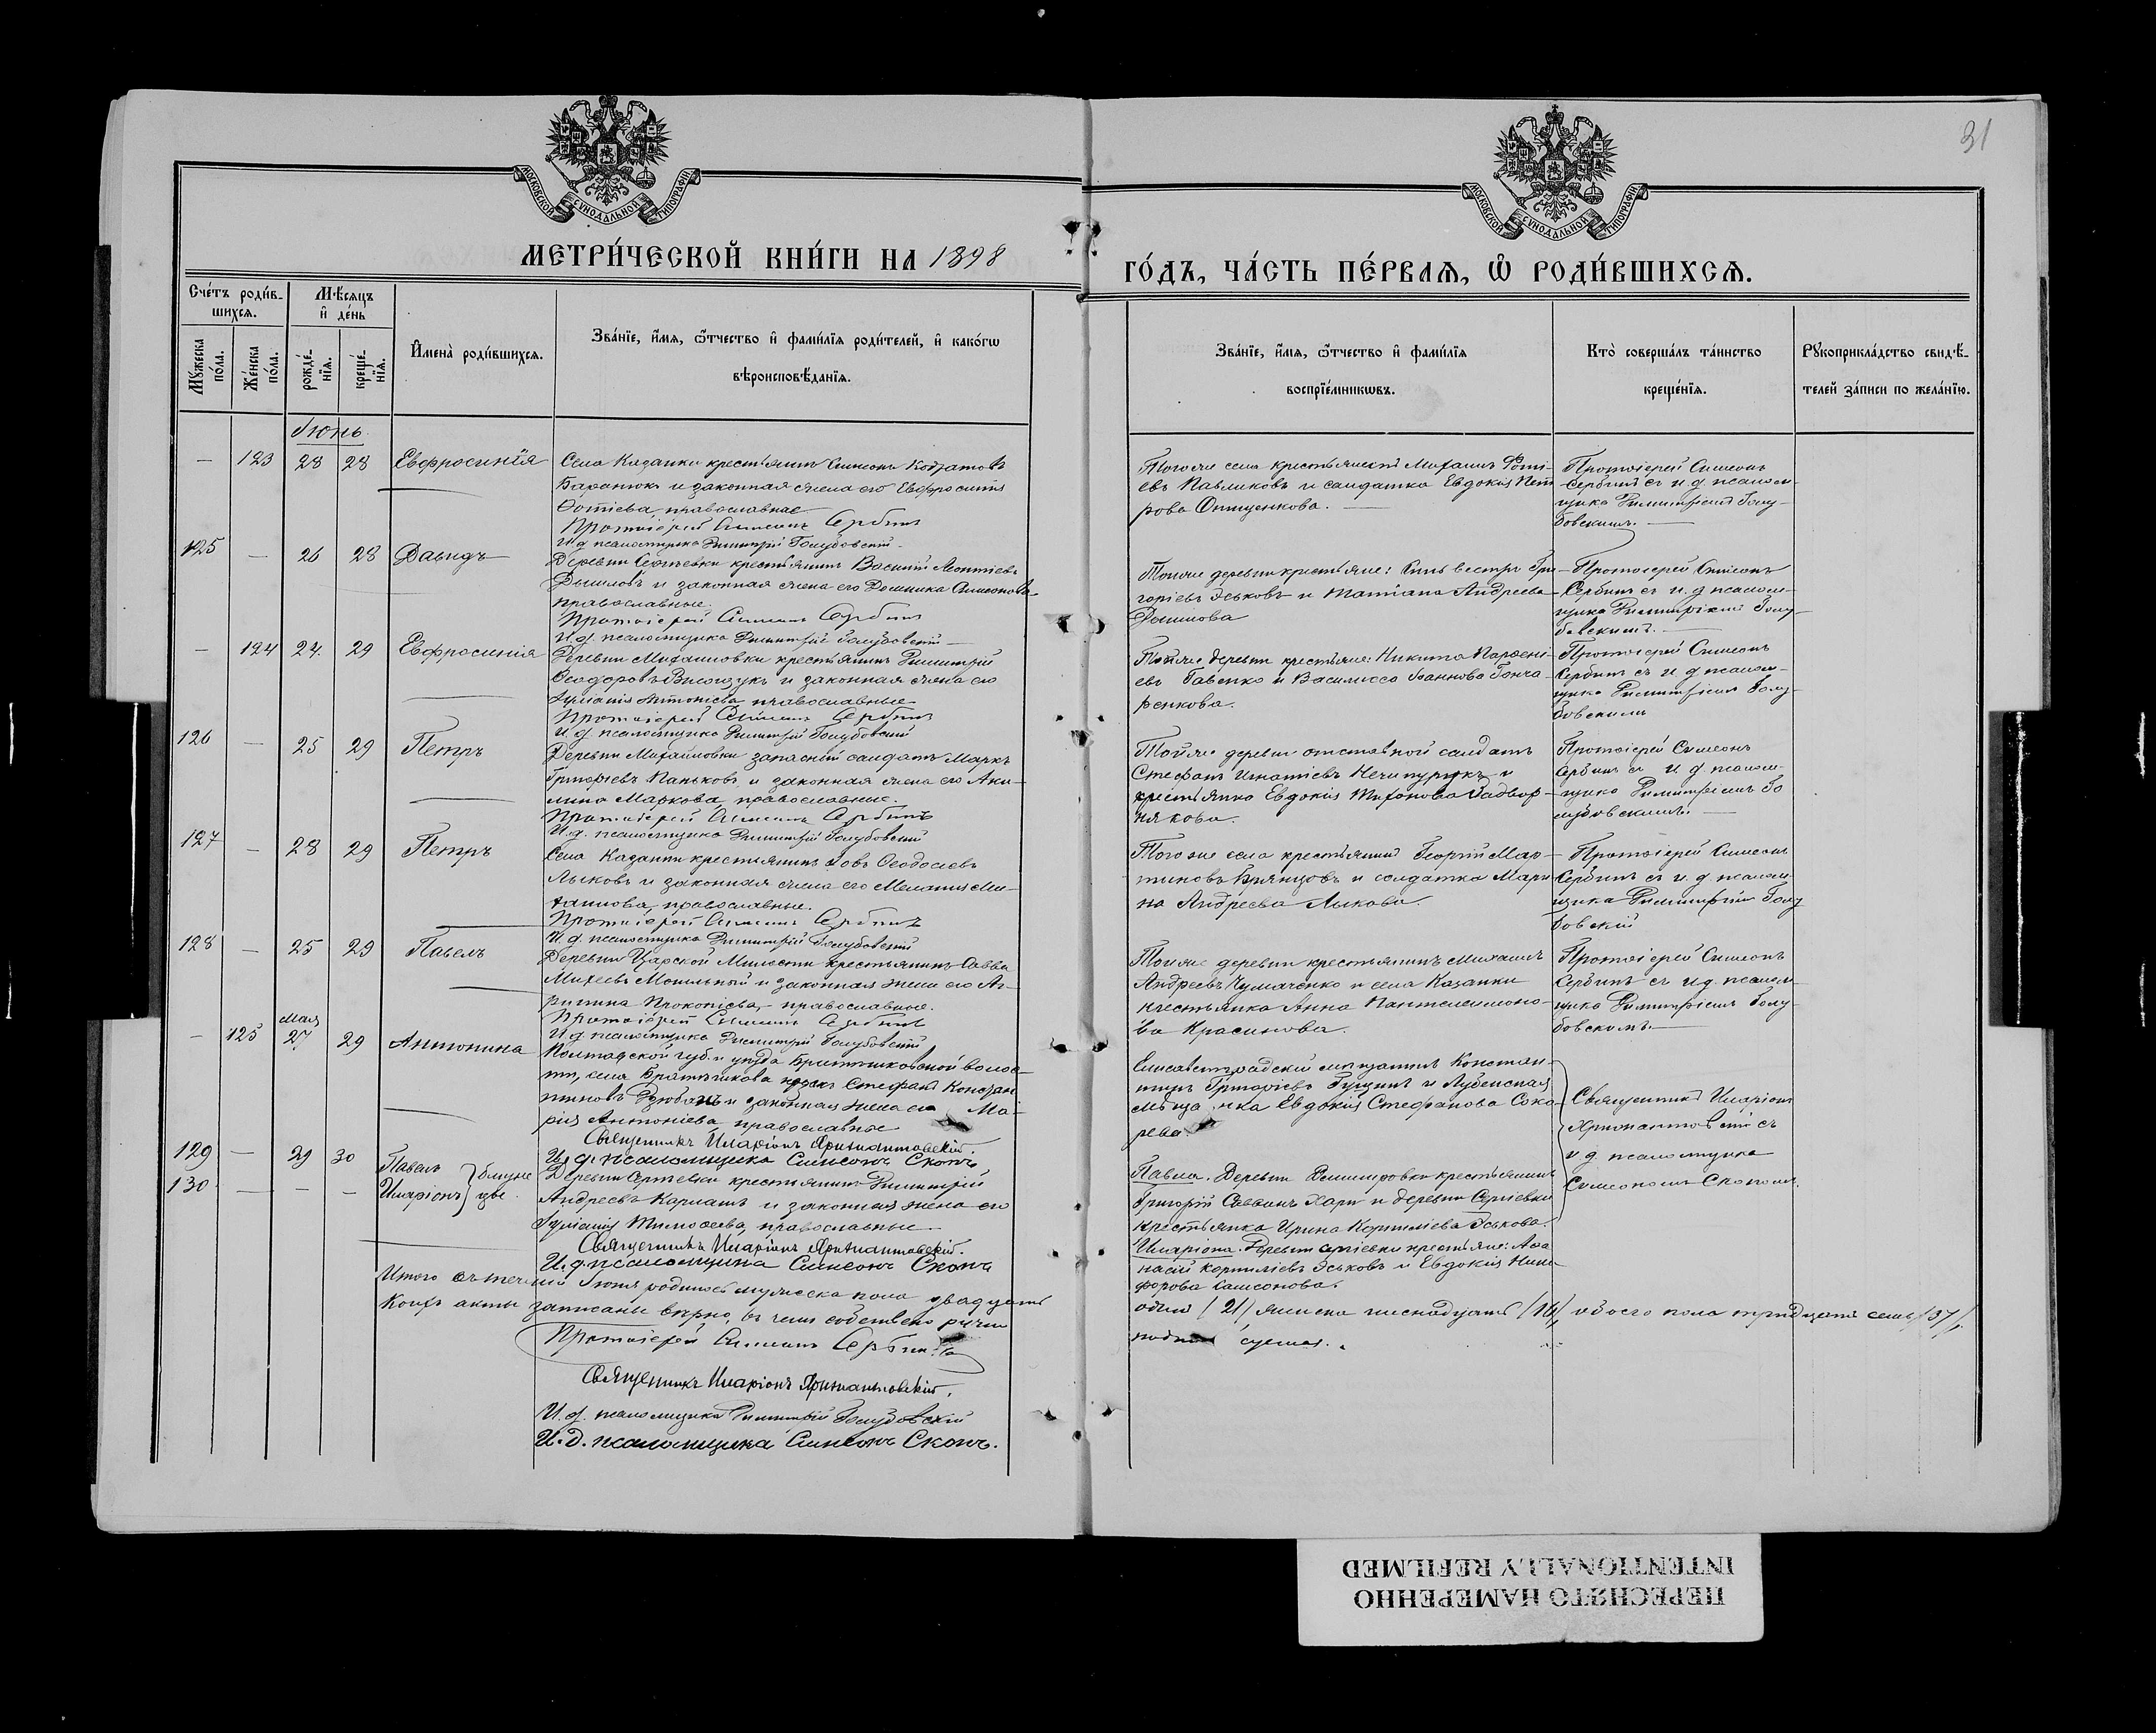 31
МОСКОВСКОЙ СѴНОДАЛЬНОЙ ТИПОГРАФІИ
МОСКОВСКОЙ СѴНОДАЛЬНОЙ ТИПОГРАФІИ
МЕТРИ́ЧЕСКОЙ КНИ́ГИ НА 1898
ГО́ДЪ, ЧА́СТЬ ПЕ́РВАѦ, Ѡ РОДИ́ВШИХСѦ.
Сче́тъ роди́в-
шихсѧ.
Мѣ́сѧцъ
и҆ де́нь
Мꙋ́жеска
по́ла.
Же́нска
по́ла.
рожде́-
нїѧ.
креще́-
нїѧ.
И҆мена̀ роди́вшихсѧ.
Зва́нїе, и҆́мѧ, ѻ҆́тчество и҆ фами́лїѧ роди́телей, и҆ како́гѡ
вѣроисповѣ́данїѧ.
Зва́нїе, и҆́мѧ, ѻ҆́тчество и҆ фами́лїѧ
воспрїе́мникѡвъ.
Кто̀ соверша́лъ та́инство
креще́нїѧ.
Рꙋкоприкла́дство свидѣ́-
телей за́писи по жела́нїю.
Іюнь.
— 123 28 28 Евфросинія
Села Казанки крестьянинъ Симеонъ Кодратовъ
Баранюкъ и законная жена его Евфросинія
Фотіева, православные
Протоіерей Симеонъ Сербинъ
И.д. псаломщика Димитрій Голубовскій
Того же села крестьянинъ Михаилъ Фоті-
евъ Павликовъ и солдатка Евдокія Пет-
рова Онищенкова.
Протоіерей Симеонъ
Сербинъ съ и. д. псалом-
щика Димитріемъ Голу-
бовскимъ.
125 — 26 28 Давидъ
Деревни Сергѣевки крестьянинъ Василій Леонтіевъ
Дышловъ и законная жена его Домника Симеонова
православные.
Протоіерей Симеонъ Сербинъ
И.д. псаломщика Димитрій Голубовскій
Той же деревни крестьяне: Сильвестръ Гри-
горіевъ Эськовъ и Татіана Андреева
Дышлова
Протоіерей Симеонъ
Сербинъ съ и. д. псалом-
щика Димитріемъ Голу-
бовскимъ.
— 124 24 29 Евфросинія
Деревни Михайловки крестьянинъ Димитрій
Ѳеодоровъ Висощукъ и законная жена его
Іуліанія Антоніева православные
Протоіерей Симеонъ Сербинъ
И.д. псаломщика Димитрій Голубовскій
Той же деревни крестьяне: Никита Парѳені-
евъ Гавенко и Василисса Іоаннова Гонча-
ренкова.
Протоіерей Симеонъ
Сербинъ съ и. д. псалом-
щика Димитріемъ Голу-
бовскимъ
126 — 25 29 Петръ
Деревни Михайловки запасный солдатъ Маркъ
Григорьевъ Паньковъ и законная жена его Аки-
лина Маркова православные.
Протоіерей Симеонъ Сербинъ
И.д. псаломщика Димитрій Голубовскій
Той же деревни отставной солдатъ
Стефанъ Игнатіевъ Нечипурукъ и
крестьянка Евдокія Тихонова Задвор-
някова.
Протоіерей Симеонъ
Сербинъ съ и. д. псалом-
щика Димитріемъ Го
лубовскимъ.
127 — 28 29 Петръ
Села Казанки крестьянинъ Іовъ Ѳеодосіевъ
Лыковъ и законная жена его Меланія Ми-
хаилова, православные.
Протоіерей Симеонъ Сербинъ
И.д. псаломщика Димитрій Голубовскій
Того же села крестьянинъ Георгій Мар-
тиновъ Брянцовъ и солдатка Мари-
на Андреева Лыкова.
Протоіерей Симеонъ
Сербинъ съ и. д. псалом-
щика Димитрій Голу
бовскій
128 — 25 29 Павелъ
Деревни Царской Милости крестьянинъ Савва
Михеевъ Могильный и законная жена его Аг-
рипина Прокопіева, православные.
Протоіерей Симеонъ Сербинъ
И.д. псаломщика Димитрій Голубовскій
Той же деревни крестьянинъ Михаилъ
Андреевъ Чумаченко и села Казанки
крестьянка Анна Пантелеимоно-
ва Красинова.
Протоіерей Симеонъ
Сербинъ съ и. д. псалом-
щика Димитріемъ Голу-
бовскимъ.
— 125 Мая 27 29 Антонина
Полтавской губ. и уѣзда Братешковской волос-
ти, села Братешкова Стефанъ Констан
тиновъ и законная жена его Ма-
рія Антоніева православные
Священникъ Иларіонъ
И.д. псаломщика Симеонъ Скопъ
Елисаветградскій мѣщанинъ Констан-
тинъ Григорьевъ Гущинъ и Лубенская
мѣщанка Евдокія Стефанова Соко-
рева
Священникъ Иларіонъ
съ
и д. псаломщика
Симеономъ Скопомъ.
129 — 29 30
130 — — —
Павелъ
Иларіонъ
близне
цы
Деревни Сергѣевки крестьянинъ Димитрій
Андреевъ Корлашъ и законная жена его
Іуліанія Тимоѳеева, православные
Священникъ Иларіонъ
И.д. псаломщика Симеонъ Скопъ
Павла. Деревни Владиміровки крестьянинъ
Григорій Саввинъ Хари и деревни Сергѣевки
крестьянка Ирина Корниліева Эськова.
Иларіона. Деревни Сергіевки крестьяне: Аѳа
насій Корниліевъ Эськовъ и Евдокія Ники-
форова Самсонова.
Итого въ теченіи Іюня родилось мужеска пола двадцать
одинъ /21/ женска шеснадцать /16/, обоего пола тридцать семь /37/.
Коихъ акты записаны вѣрно, въ чемъ собственно ручно
Протоіерей Симеонъ Сербинъ
Священникъ Иларіонъ
И.д. псаломщика Димитрій Голубовскій
И.д. псаломщика Симеонъ Скопъ.
ПЕРЕСНЯТО НАМЕРЕННО
INTENTIONALLY REFILMED